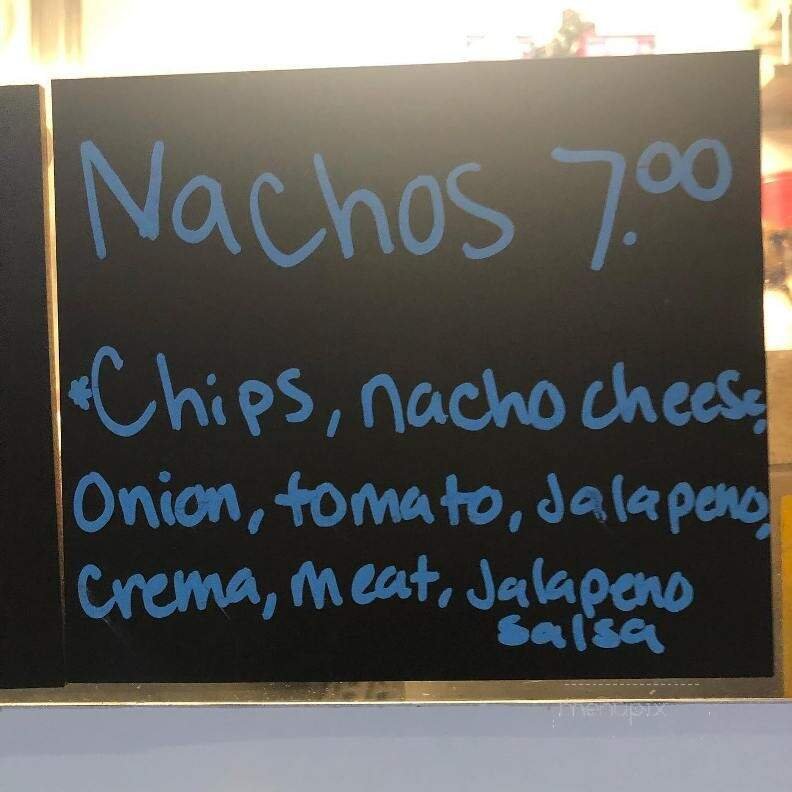 Nachos 7.00
*Chips, nacho cheese,
Onion, tomato, Jalapeno,
Crema, meat, Jalapeno
salsa
menupix